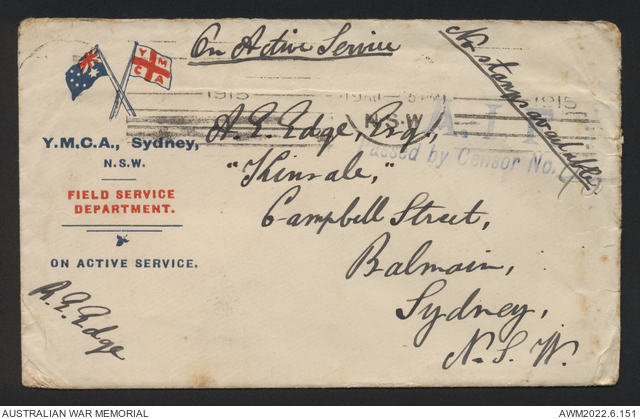 On Active Service
No stamps available
Y M
C A
1915
1915
N.S.W.
A.I.F.
Passed by Censor No.
Y.M.C.A., Sydney,
N.S.W.
FIELD SERVICE
DEPARTMENT.
ON ACTIVE SERVICE.
A. E. Edge, Esq.,
"Kinsale,"
Campbell Street,
Balmain,
Sydney,
N. S. W.
R. E. Edge
AUSTRALIAN WAR MEMORIAL
AWM2022.6.151